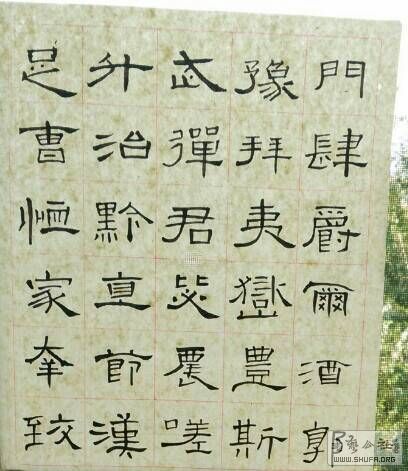 門肆爵爾酒
豫拜夷嶽豊斯
武彈君嗟
升治黔直節漢
足曹恤家致
WWW.SHUFA.ORG